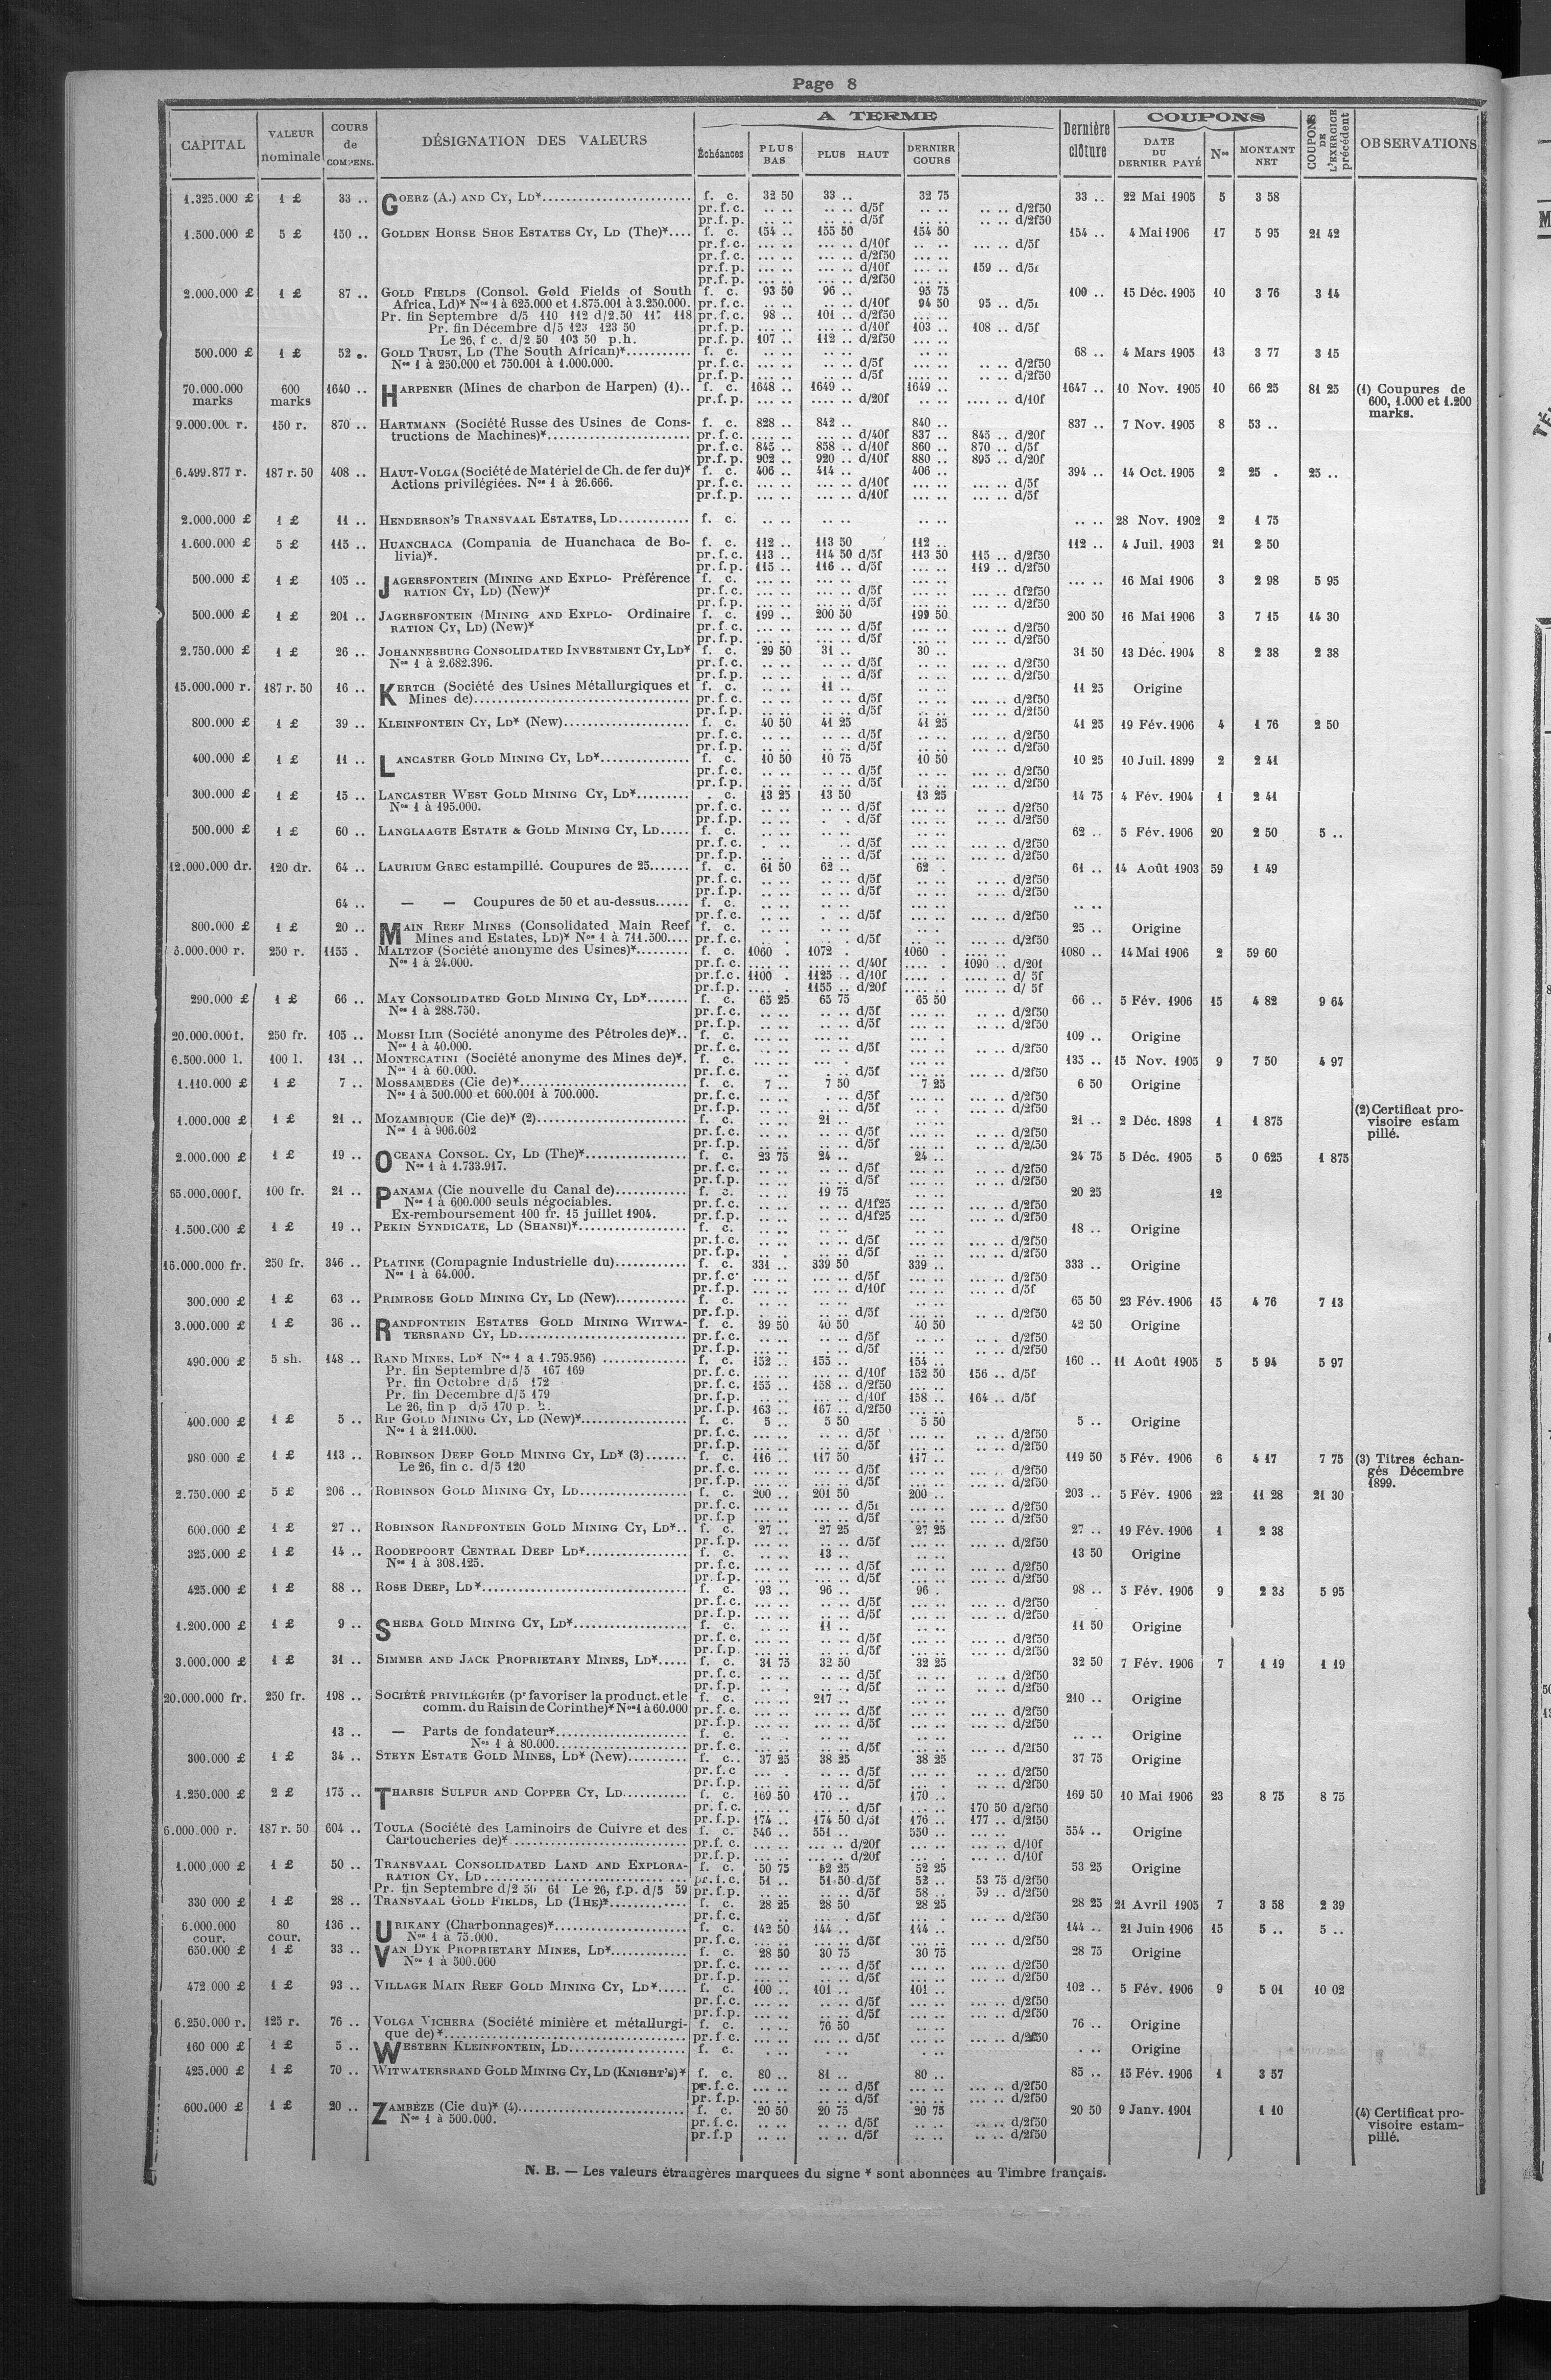 Page 8
CAPITAL VALEUR nominale COURS de COMPENS. DÉSIGNATION DES VALEURS A TERME Dernière clôture COUPONS COUPONS DE L'EXERCICE précédent OBSERVATIONS
Échéances PLUS BAS PLUS HAUT DERNIER COURS DATE DU DERNIER PAYÉ Nos MONTANT NET
1.325.000 £ 1 £ 33 .. GOERZ (A.) AND CY, LD* f. c. 32 50 33 .. 32 75 33 .. 22 Mai 1905 5 3 58
pr.f.c. .. .. .. .. d/5f .. .. .. .. d/2f50
pr.f.p. .. .. .. .. d/5f .. .. .. .. d/2f50
1.500.000 £ 5 £ 150 .. GOLDEN HORSE SHOE ESTATES CY, LD (The)*.... f. c. 154 .. 155 50 154 50 154 .. 4 Mai 1906 17 5 95 21 42
pr.f.c. ... .. ... .. d/10f .. .. ... .. d/5f
pr.f.c. ... .. ... .. d/2f50
pr.f.p. ... .. ... .. d/10f ... .. 159 .. d/5f
pr.f.p. ... .. ... .. d/2f50
2.000.000 £ 1 £ 87 .. GOLD FIELDS (Consol. Gold Fields of South f. c. 93 50 96 .. 95 75 100 .. 15 Déc. 1905 10 3 76 3 14
Africa, Ld)* Nos 1 à 625.000 et 1.875.001 à 3.250.000. pr.f.c. .. .. ... .. d/10f 94 50 95 .. d/5f
Pr. fin Septembre d/5 110 112 d/2.50 117 118 pr.f.c. 98 .. 101 .. d/2f50 ... ..
Pr. fin Décembre d/5 123 123 50 pr.f.p. ... .. ... .. d/10f 103 .. 108 .. d/5f
Le 26, f c. d/2 50 103 50 p.h. pr.f.p. 107 .. 112 .. d/2f50 ... ..
500.000 £ 1 £ 52 .. GOLD TRUST, LD (The South African)* f. c. .. .. .. .. .. .. 68 .. 4 Mars 1905 13 3 77 3 15
Nos 1 à 250.000 et 750.001 à 1.000.000. pr.f.c. .. .. .. .. d/5f .. .. .. .. d/2f50
pr.f.p. ... .. .. .. d/5f ... .. .. .. d/2f50
70.000.000 marks 600 marks 1640 .. HARPENER (Mines de charbon de Harpen) (1).. f. c. 1648 .. 1649 .. 1649 .. 1647 .. 10 Nov. 1905 10 66 25 81 25 (1) Coupures de
pr.f.p. ... .. .... .. d/20f .. .. .... .. d/10f 600, 1.000 et 1.200
marks.
9.000.000 r. 150 r. 870 .. HARTMANN (Société Russe des Usines de Cons- f. c. 828 .. 842 840 .. 837 .. 7 Nov. 1905 8 53 ..
tructions de Machines)* pr.f.c. .... .. ... .. d/40f 837 .. 845 .. d/20f
pr.f.c. 845 .. 858 .. d/10f 860 .. 870 .. d/5f
pr.f.p. 902 .. 920 .. d/10f 880 .. 895 .. d/20f
6.499.877 r. 187 r. 50 408 .. HAUT-VOLGA (Société de Matériel de Ch. de fer du)* f. c. 406 .. 414 .. 406 .. 394 .. 14 Oct. 1905 2 25 . 25 ..
Actions privilégiées. Nos 1 à 26.666. pr.f.c. ... .. ... .. d/10f ... .. ... .. d/5f
pr.f.p. ... .. ... .. d/10f ... .. ... .. d/5f
2.000.000 £ 1 £ 11 .. HENDERSON'S TRANSVAAL ESTATES, LD f. c. .. .. .. .. .. .. .. .. 28 Nov. 1902 2 1 75
1.600.000 £ 5 £ 115 .. HUANCHACA (Compania de Huanchaca de Bo- f. c. 112 .. 113 50 112 .. 112 .. 4 Juil. 1903 21 2 50
livia)*. pr.f.c. 113 .. 114 50 d/5f 113 50 115 .. d/2f50
pr.f.p. 115 .. 116 .. d/5f ... .. 119 .. d/2f50
500.000 £ 1 £ 105 .. JAGERSFONTEIN (MINING AND EXPLO- Préférence f. c. ... .. ... .. ... .. ... .. 16 Mai 1906 3 2 98 5 95
RATION CY, LD) (New)* pr.f.c. ... .. ... .. d/5f ... .. ... .. df2f50
pr.f.p. ... .. ... .. d/5f ... .. ... .. d/2f50
500.000 £ 1 £ 201 .. JAGERSFONTEIN (MINING AND EXPLO- Ordinaire f. c. 199 .. 200 50 199 50 200 50 16 Mai 1906 3 7 15 14 30
RATION CY, LD) (New)* pr.f.c. ... .. ... .. d/5f ... .. ... .. d/2f50
pr.f.p. ... .. ... .. d/5f ... .. ... .. d/2f50
2.750.000 £ 1 £ 26 .. JOHANNESBURG CONSOLIDATED INVESTMENT CY, LD* f. c. 29 50 31 .. 30 .. 31 50 13 Déc. 1904 8 2 38 2 38
Nos 1 à 2.682.396. pr.f.c. .. .. .. .. d/5f .. .. ... .. d/2f50
pr.f.p. .. .. .. .. d/5f .. .. ... .. d/2f50
15.000.000 r. 187 r. 50 16 .. KERTCH (Société des Usines Métallurgiques et f. c. .. .. 11 .. .. .. 11 25 Origine
Mines de) pr.f.c. .. .. .. .. d/5f .. .. ... .. d/2f50
pr.f.p. .. .. .. .. d/5f .. .. ... .. d/2f50
800.000 £ 1 £ 39 .. KLEINFONTEIN CY, LD* (New) f. c. 40 50 41 25 41 25 41 25 19 Fév. 1906 4 1 76 2 50
pr.f.c. .. .. .. .. d/5f .. .. ... .. d/2f50
pr.f.p. .. .. .. .. d/5f .. .. ... .. d/2f50
400.000 £ 1 £ 11 .. LANCASTER GOLD MINING CY, LD* f. c. 10 50 10 75 10 50 10 25 10 Juil. 1899 2 2 41
pr.f.c. .. .. .. .. d/5f .. .. ... .. d/2f50
pr.f.p. .. .. .. .. d/5f .. .. ... .. d/2f50
300.000 £ 1 £ 15 .. LANCASTER WEST GOLD MINING CY, LD* . c. 13 25 13 50 13 25 14 75 4 Fév. 1904 1 2 41
Nos 1 à 195.000. pr.f.c. .. .. .. .. d/5f ... .. .. .. d/2f50
pr.f.p. .. .. . . d/5f ... .. .. .. d/2f50
500.000 £ 1 £ 60 .. LANGLAAGTE ESTATE & GOLD MINING CY, LD..... f. c. .. .. .. .. .. .. 62 .. 5 Fév. 1906 20 2 50 5 ..
pr.f.c. . .. .. d/5f .. .. ... .. d/2f50
pr.f.p. .. .. .. .. d/5f ... .. ... .. d/2f50
12.000.000 dr. 120 dr. 64 .. LAURIUM GREC estampillé. Coupures de 25 f. c. 61 50 62 .. 62 . 61 .. 14 Août 1903 59 1 49
pr.f.c. .. .. .. .. d/5f .. .. .. .. d/2f50
pr.f.p. .. .. .. .. d/5f .. .. .. .. d/2f50
64 .. — — Coupures de 50 et au-dessus f. c. .. .. .. .. ... .. .. ..
pr.f.c. .. .. . .. d/5f ... .. ... .. d/2f50
800.000 £ 1 £ 20 .. MAIN REEF MINES (Consolidated Main Reef f. c. .. .. .. .. .. . 25 .. Origine
Mines and Estates, LD)* Nos 1 à 711.500.... pr.f.c. .. . . . d/5f .. .. ... .. d/2f50
6.000.000 r. 250 r. 1155 . MALTZOF (Société anonyme des Usines)* f. c. 1060 . 1072 . 1060 . 1080 .. 14 Mai 1906 2 59 60
Nos 1 à 24.000. pr.f.c. .... .. .... .. d/40f .... . 1090 .. d/20f
pr.f.c. 1100 . 1125 .. d/10f .... . .... .. d/ 5f
pr.f.p. .... . 1155 .. d/20f .... .. .... .. d/ 5f
290.000 £ 1 £ 66 .. MAY CONSOLIDATED GOLD MINING CY, LD* f. c. 65 25 65 75 65 50 66 .. 5 Fév. 1906 15 4 82 9 64
Nos 1 à 288.750. pr.f.c. .. .. .. .. d/5f .. .. .. .. d/2f50
pr.f.p. .. .. .. .. d/5f .. .. .. .. d/2f50
20.000.000 f. 250 fr. 105 .. MOESI ILIR (Société anonyme des Pétroles de)*.. f. c. ... .. ... .. ... . 109 .. Origine
Nos 1 à 40.000. pr.f.c. . .. .. .. d/5f ... .. .. .. d/2f50
6.500.000 l. 100 l. 131 .. MONTECATINI (Société anonyme des Mines de)*. f. c. ... .. ... . ... .. 135 .. 15 Nov. 1905 9 7 50 4 97
Nos 1 à 60.000. pr.f.c. .. .. .. d/5f ... .. ... .. d/2f50
1.110.000 £ 1 £ 7 .. MOSSAMEDES (Cie de)* f. c. 7 .. 7 50 7 25 6 50 Origine
Nos 1 à 500.000 et 600.001 à 700.000. pr.f.c. .. .. . .. d/5f .. .. ... .. d/2f50
pr.f.p. .. .. .. .. d/5f .. . ... .. d/2f50
1.000.000 £ 1 £ 21 .. MOZAMBIQUE (Cie de)* (2) f. c. .. .. 21 .. .. .. 21 .. 2 Déc. 1898 1 1 875 (2) Certificat pro-
Nos 1 à 906.602 pr.f.c. .. .. .. .. d/5f .. .. .. .. d/2f50 visoire estam
pr.f.p. .. .. .. .. d/5f .. .. .. .. d/2f50 pillé.
2.000.000 £ 1 £ 19 .. OCEANA CONSOL. CY, LD (The)* f. c. 23 75 24 .. 24 .. 24 75 5 Déc. 1905 5 0 625 1 875
Nos 1 à 1.733.917. pr.f.c. .. .. .. .. d/5f .. .. ... .. d/2f50
pr.f.p. .. .. .. .. d/5f .. .. ... .. d/2f50
65.000.000 f. 100 fr. 21 .. PANAMA (Cie nouvelle du Canal de) f. c. .. .. 19 75 .. .. 20 25 12
Nos 1 à 600.000 seuls négociables. pr.f.c. .. .. .. .. d/1f25 .. .. ... .. d/2f50
Ex-remboursement 100 fr. 15 juillet 1904. pr.f.p. .. .. .. .. d/1f25 ... ... .. d/2f50
1.500.000 £ 1 £ 19 .. PEKIN SYNDICATE, LD (SHANSI)* f. c. .. .. .. .. .. .. 18 .. Origine
pr.f.c. .. .. .. .. d/5f .. .. ... .. d/2f50
pr.f.p. .. . .. .. d/5f .. .. ... .. d/2f50
16.000.000 fr. 250 fr. 346 .. PLATINE (Compagnie Industrielle du) f. c. 331 .. 339 50 339 .. 333 .. Origine
Nos 1 à 64.000. pr.f.c. ... .. ... .. d/5f ... .. ... .. d/2f50
pr.f.p. ... .. ... .. d/10f ... .. ... .. d/5f
300.000 £ 1 £ 63 .. PRIMROSE GOLD MINING CY, LD (New) f. c. .. .. .. .. .. .. 65 50 23 Fév. 1906 15 4 76 7 13
pr.f.p. . .. .. .. d/5f .. .. ... .. d/2f50
3.000.000 £ 1 £ 36 .. RANDFONTEIN ESTATES GOLD MINING WITWA- f. c. 39 50 40 50 40 50 42 50 Origine
TERSRAND CY, LD pr.f.c. .. .. .. .. d/5f .. .. .. . d/2f50
pr.f.p. .. .. .. .. d/5f .. .. ... .. d/2f50
490.000 £ 5 sh. 148 .. RAND MINES, LD* Nos 1 a 1.795.956) f. c. 152 .. 155 .. 154 .. 160 .. 11 Août 1905 5 5 94 5 97
Pr. fin Septembre d/5 167 169 pr.f.c. ... .. ... .. d/10f 152 50 156 .. d/5f
Pr. fin Octobre d/5 172 pr.f.c. 155 .. 158 .. d/2f50 ... ..
Pr. fin Décembre d/5 179 pr.f.p. .. .. ... .. d/10f 158 .. 164 .. d/5f
Le 26, fin p d/5 170 p. h. pr.f.p. 163 .. 167 .. d/2f50 ... ..
400.000 £ 1 £ 5 .. RIP GOLD MINING CY, LD (New)* f. c. 5 .. 5 50 5 50 5 .. Origine
Nos 1 à 211.000. pr.f.c. ... .. .. .. d/5f ... .. ... .. d/2f50
pr.f.p. ... .. .. .. d/5f ... .. ... .. d/2f50
980 000 £ 1 £ 113 .. ROBINSON DEEP GOLD MINING CY, LD* (3) f. c. 116 .. 117 50 117 .. 119 50 5 Fév. 1906 6 4 17 7 75 (3) Titres échan-
Le 26, fin c. d/5 120 pr.f.c. ... .. ... .. d/5f ... .. ... .. d/2f50 gés Décembre
pr.f.p. ... .. ... .. d/5f ... .. ... .. d/2f50 1899.
2.750.000 £ 5 £ 206 .. ROBINSON GOLD MINING CY, LD f. c. 200 .. 201 50 200 .. 203 .. 5 Fév. 1906 22 11 28 21 30
pr.f.c. ... .. ... .. d/5f ... .. ... .. d/2f50
pr.f.p ... .. ... .. d/5f ... .. ... .. d/2f50
600.000 £ 1 £ 27 .. ROBINSON RANDFONTEIN GOLD MINING CY, LD*.. f. c. 27 .. 27 25 27 25 27 .. 19 Fév. 1906 1 2 38
pr.f.p. ... .. ... .. d/5f ... .. ... .. d/2f50
325.000 £ 1 £ 14 .. ROODEPOORT CENTRAL DEEP LD* f. c. .. .. 13 .. .. .. 13 50 Origine
Nos 1 à 308.125. pr.f.c. ... .. ... .. d/5f ... .. ... .. d/2f50
pr.f.p. ... .. ... .. d/5f ... .. ... .. d/2f50
425.000 £ 1 £ 88 .. ROSE DEEP, LD* f. c. 93 .. 96 .. 96 . 98 .. 5 Fév. 1906 9 2 33 5 95
pr.f.c. ... .. .. .. d/5f ... .. ... .. d/2f50
pr.f.p. ... .. .. .. d/5f ... .. ... .. d/2f50
1.200.000 £ 1 £ 9 .. SHEBA GOLD MINING CY, LD* f. c. .. .. 11 .. .. .. 11 50 Origine
pr.f.c. ... .. .. .. d/5f ... .. ... .. d/2f50
pr.f.p. ... .. .. .. d/5f ... .. ... .. d/2f50
3.000.000 £ 1 £ 31 .. SIMMER AND JACK PROPRIETARY MINES, LD*..... f. c. 31 75 32 50 32 25 32 50 7 Fév. 1906 7 1 19 1 19
pr.f.c. .. .. .. .. d/5f .. .. .. .. d/2f50
pr.f.p. .. .. . .. d/5f .. .. .. .. d/2f50
20.000.000 fr. 250 fr. 198 .. SOCIÉTÉ PRIVILÉGIÉE (pr favoriser la product. et le f. c. ... .. 217 .. ... .. 210 .. Origine
comm. du Raisin de Corinthe)* Nos 1 à 60.000 pr.f.c. ... .. ... .. d/5f ... .. ... .. d/2f50
pr.f.p. ... .. ... .. d/5f ... .. ... .. d/2f50
13 .. — Parts de fondateur* f. c. .. .. .. .. .. .. .. .. Origine
Nos 1 à 80.000 pr.f.c. ... .. .. .. d/5f ... .. ... .. d/2f50
300.000 £ 1 £ 34 .. STEYN ESTATE GOLD MINES, LD* (New) f. c. 37 25 38 25 38 25 37 75 Origine
pr.f.c ... . .. .. d/5f ... .. .. .. d/2f50
pr.f.p. ... .. .. .. d/5f ... . .. .. d/2f50
1.250.000 £ 2 £ 175 .. THARSIS SULFUR AND COPPER CY, LD f. c. 169 50 170 .. 170 .. 169 50 10 Mai 1906 23 8 75 8 75
pr.f.c. ... .. ... .. d/5f ... .. 170 50 d/2f50
pr.f.p. 174 .. 174 50 d/5f 176 .. 177 .. d/2f50
6.000.000 r. 187 r. 50 604 .. TOULA (Société des Laminoirs de Cuivre et des f. c. 546 .. 551 .. 550 .. 554 .. Origine
Cartoucheries de)* pr.f.c. ... .. ... .. d/20f ... .. ... .. d/10f
pr.f.p. ... .. ... .. d/20f ... .. ... . d/10f
1.000.000 £ 1 £ 50 .. TRANSVAAL CONSOLIDATED LAND AND EXPLORA- f. c. 50 75 52 25 52 25 53 25 Origine
RATION CY, LD pr.f.c. 51 .. 51 50 d/5f 52 .. 53 75 d/2f50
Pr. fin Septembre d/2 50 61 Le 26, f.p. d/5 59 pr.f.p. .. .. .. .. d/5f 58 .. 59 .. d/2f50
330 000 £ 1 £ 28 .. TRANSVAAL GOLD FIELDS, LD (THE)* f. c. 28 25 28 50 28 25 28 25 21 Avril 1905 7 3 58 2 39
pr.f.c. .. .. .. . d/5f . . ... .. d/2f50
6.000.000 cour. 80 cour. 136 .. URIKANY (Charbonnages)* f. c. 142 50 144 .. 144 .. 144 .. 21 Juin 1906 15 5 .. 5 ..
Nos 1 à 75.000. pr.f.c. ... .. ... .. d/5f ... .. ... .. d/2f50
650.000 £ 1 £ 33 .. VAN DYK PROPRIETARY MINES, LD* f. c. 28 50 30 75 30 75 28 75 Origine
Nos 1 à 500.000 pr.f.c. ... .. .. .. d/5f ... .. ... .. d/2f50
pr.f.p. ... .. .. .. d/5f ... .. ... .. d/2f50
472.000 £ 1 £ 93 .. VILLAGE MAIN REEF GOLD MINING CY, LD*..... f. c. 100 .. 101 .. 101 .. 102 .. 5 Fév. 1906 9 5 01 10 02
pr.f.c. ... .. .. .. d/5f ... .. ... .. d/2f50
pr.f.p. ... .. .. .. d/5f ... .. ... .. d/2f50
6.250.000 r. 125 r. 76 .. VOLGA VICHERA (Société minière et métallurgi- f. c. .. .. 76 50 .. .. 76 .. Origine
que de)* pr.f.c. ... .. ... .. d/5f ... .. ... .. d/2f50
160 000 £ 1 £ 5 .. WESTERN KLEINFONTEIN, LD f. c. . .. .. .. .. .. . .. Origine
425.000 £ 1 £ 70 .. WITWATERSRAND GOLD MINING CY, LD (KNIGHT'S)* f. c. 80 .. 81 .. 80 .. 85 .. 15 Fév. 1906 1 3 57
pr.f.c. ... .. .. .. d/5f ... .. ... .. d/2f50
pr.f.p. ... .. .. .. d/5f ... .. ... .. d/2f50
600.000 £ 1 £ 20 .. ZAMBÈZE (Cie du)* (4) f. c. 20 50 20 75 20 75 20 50 9 Janv. 1901 1 10 (4) Certificat pro-
Nos 1 à 500.000. pr.f.c. .. .. .. .. d/5f .. .. .. .. d/2f50 visoire estam-
pr.f.p .. .. .. .. d/5f .. .. .. .. d/2f50 pillé.
N. B. — Les valeurs étrangères marquees du signe * sont abonnées au Timbre français.